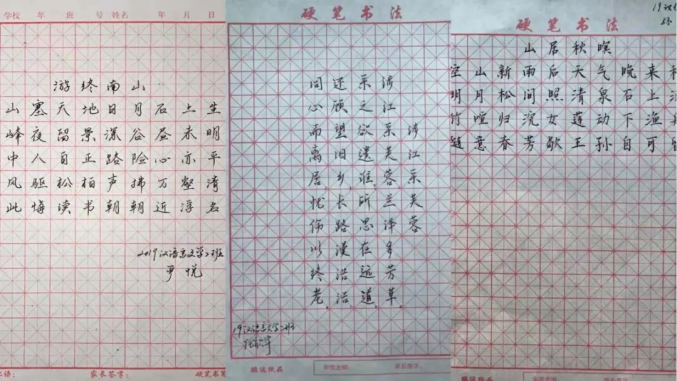 学校 年 班 号 姓名 年 月 日
游终南山
山塞天地日月石上生
峰夜留景深谷昼未明
中人自正路险心亦平
风驱松柏声拂万壑清
此悔读书朝朝近浮名
2019汉语言文学2班
尹悦
家长签字:
硬笔书法
涉江采芙蓉
涉江采芙蓉兰泽多芳草
采之欲遗谁所思在远道
还顾望旧乡长路漫浩浩
同心而离居忧伤以终老
19汉语言文学二班
硬笔书法
山居秋暝
空山新雨后天气晚来
明月松间照清泉石上
竹喧归浣女莲动下渔
随意春芳歇王孙自可留